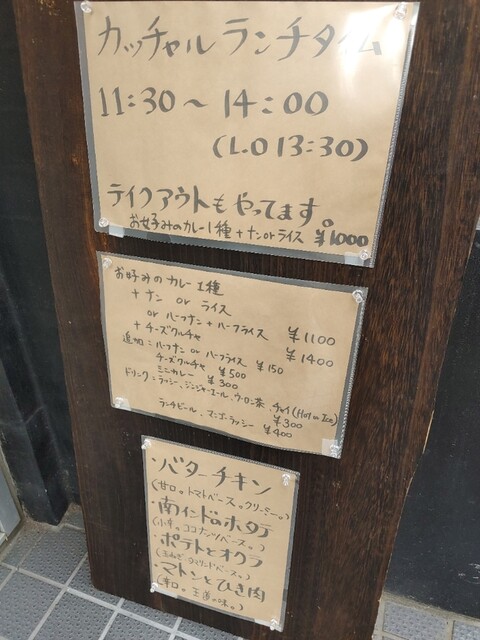 カッチャル ランチタイム
11:30～14:00
(L.O 13:30)
テイクアウトもやってます。
お好みのカレー1種+ナンorライス ¥1000
お好みのカレー1種
+ナン or ライス
or ハーフナン+ハーフライス ¥1100
+チーズクルチャ ¥1400
追加:ハーフナン or ハーフライス ¥150
チーズクルチャ ¥500
ミニカレー ¥300
ドリンク:ラッシー、ジンジャーエール、ウーロン茶、チャイ(Hot or Ice)
¥300
ランチビール、マンゴーラッシー ¥400
・バターチキン
(甘口。トマトベース。クリーミー。)
・南インドのホタテ
(小辛。ココナッツベース。)
・ポテトとオクラ
ベース。)
・マトンとひき肉
(辛口。王道の味。)